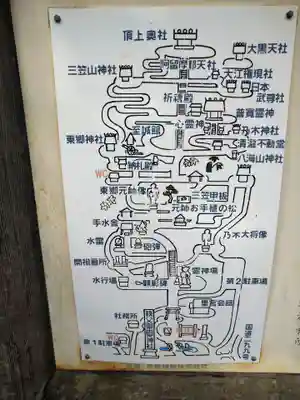 頂上奥社
大黒天社
阿留摩耶天社
三笠山神社
大江権現社
日本
武尊社
祈祷殿
普寛霊神
心霊神
乃木神社
至誠館
清滝不動堂
東郷神社
八海山神社
納札殿
WC
東郷元帥像
三笠甲板
元帥お手植の松
手水舎
乃木大将像
水雷
砲弾
開祖墓所
霊神場
水行場
顕彰碑
第2駐車場
里宮会館
社務所
国道二九九号
第1駐車場